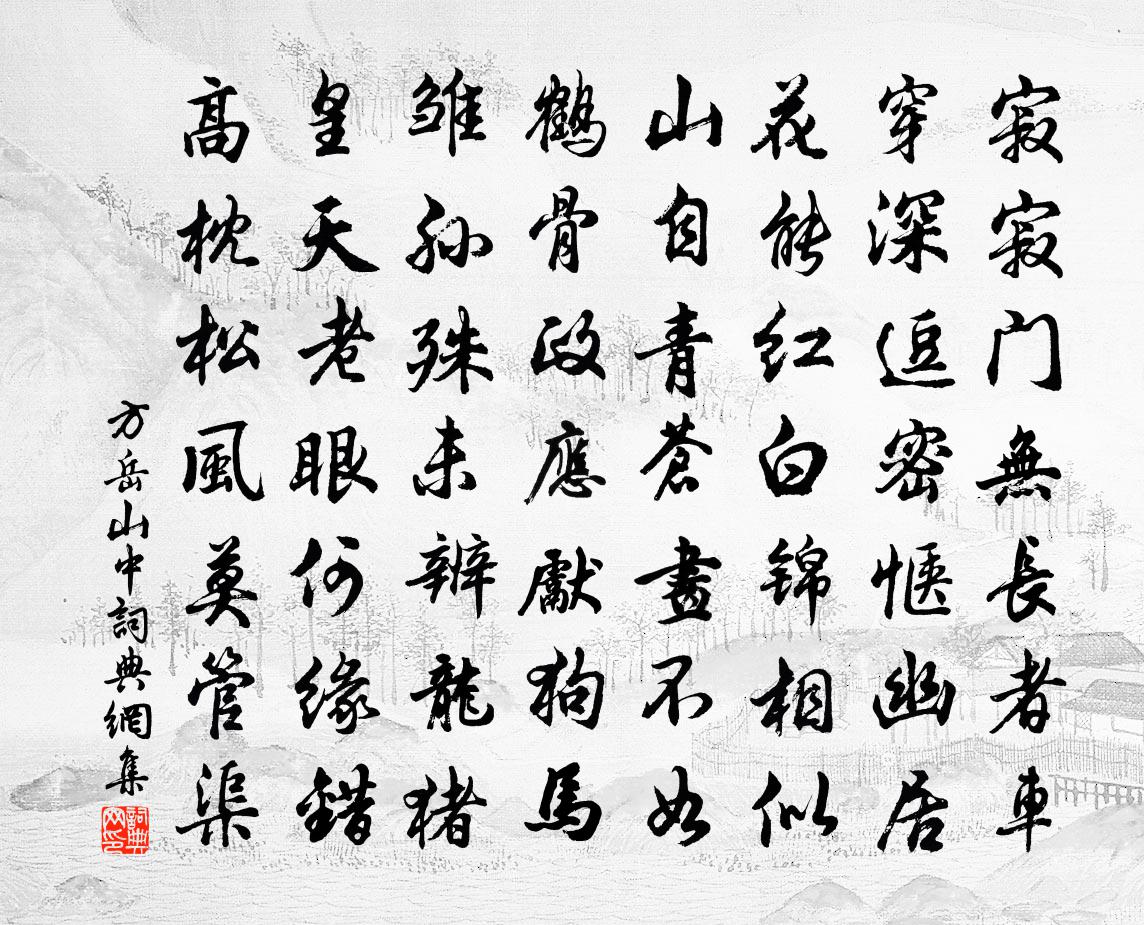 寂寂门無長者車
穿深逗密惬幽居
花能红白锦相似
山自青蒼畫不如
鶴骨政應獻狗馬
雏孙殊未辨龍猪
皇天老眼何缘錯
高枕松風莫管渠
方岳山中詞典網集
詞典网印